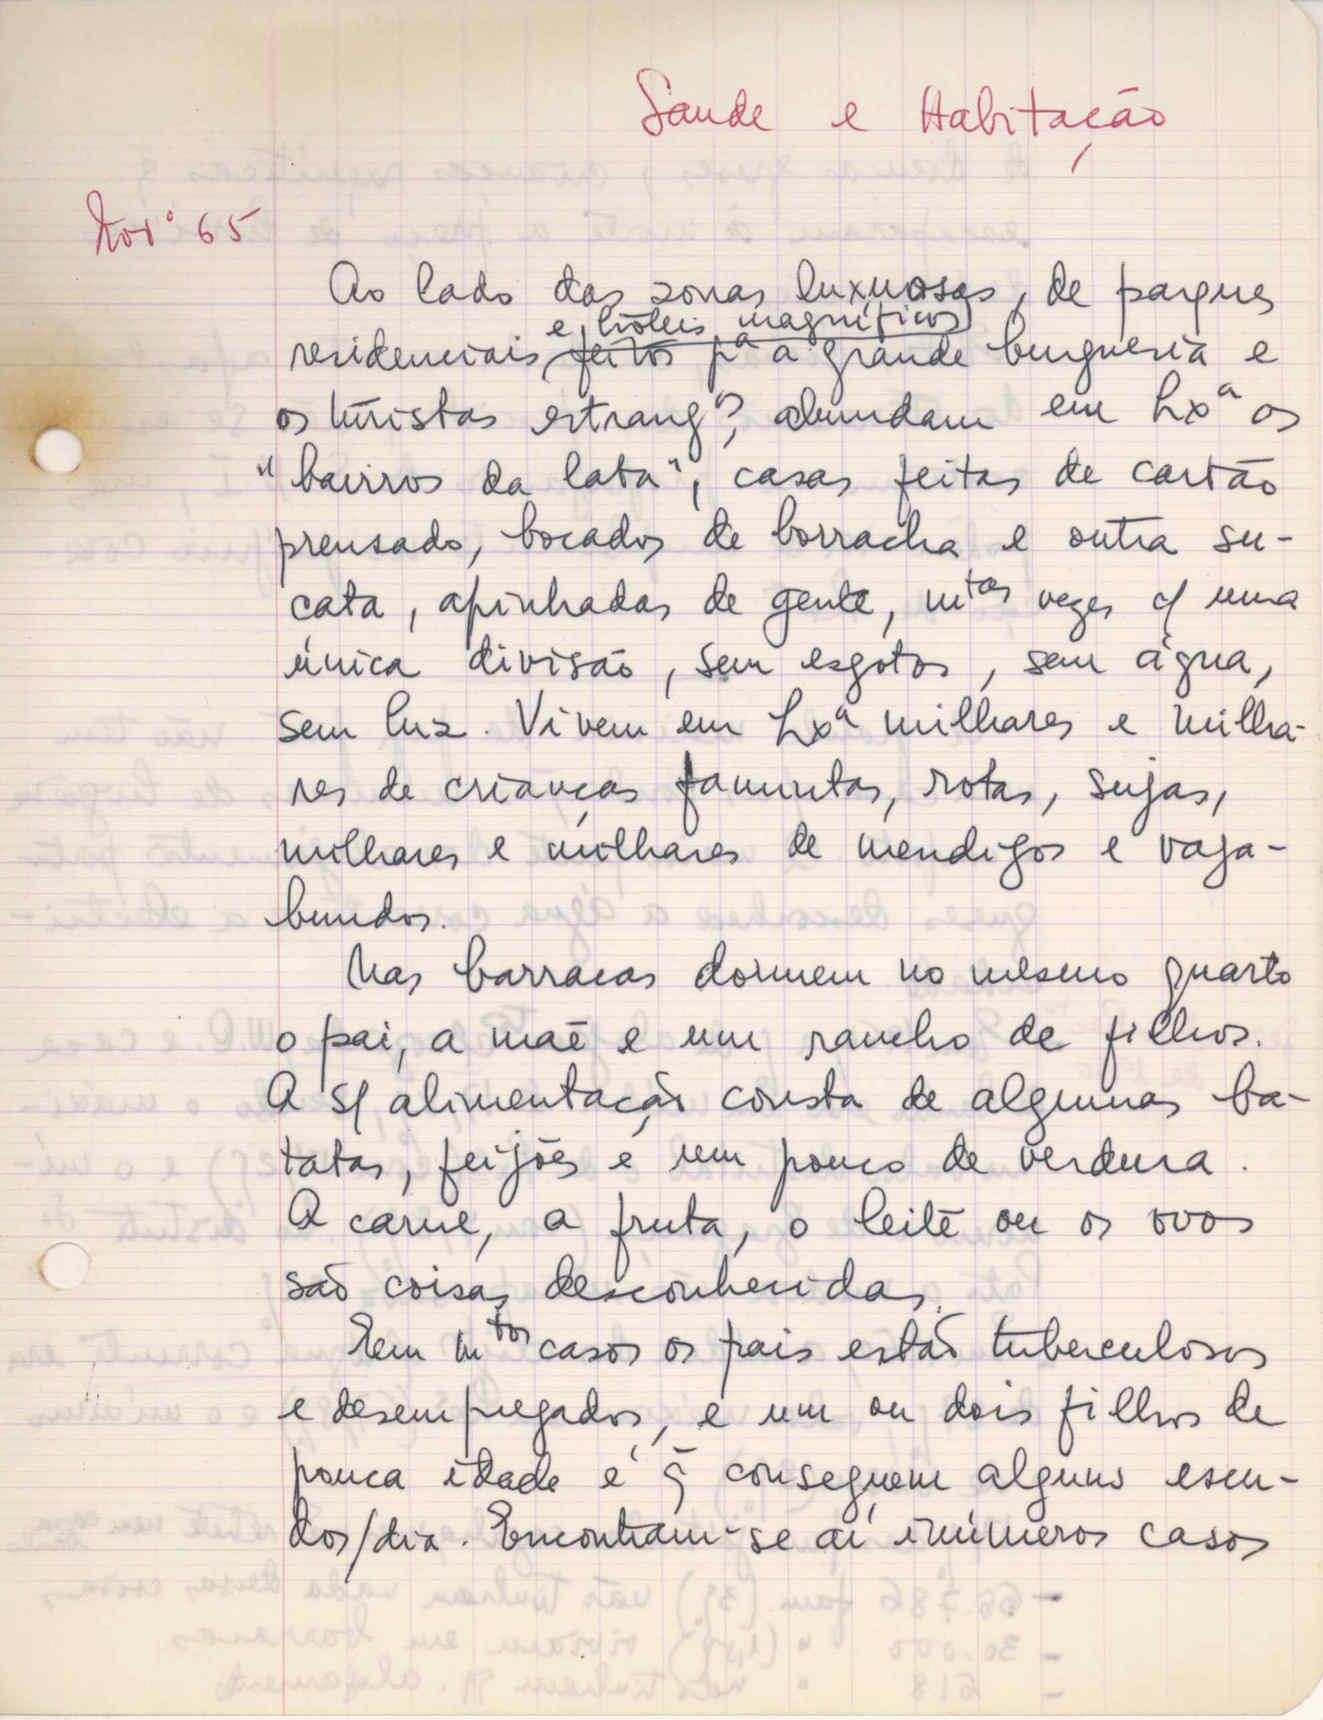 Saude e Habitação
Nov.º 65
Ao lado das zonas luxuosas, de parques
e hóteis magníficos
residenciais, feitos pª a grande burguesia e
os turistas estrangºs, abundam em Lxª os
"bairros da lata", casas feitas de cartão
prensado, bocados de borracha e outra su-
cata, apinhadas de gente, mtas vezes c/ uma
única divisão, sem esgotos, sem água,
sem luz. Vivem em Lxª milhares e milha-
res de crianças famintas, rotas, sujas,
milhares e milhares de mendigos e vaga-
bundos.
Nas barracas dormem no mesmo quarto
o pai, a mãe e um rancho de filhos.
A s/ alimentação consta de algumas ba-
tatas, feijões e um pouco de verdura.
A carne, a fruta, o leite ou os ovos
são coisas desconhecidas.
Em mtos casos os pais estão tuberculosos
e desempregados, e um ou dois filhos de
pouca idade é q̃ conseguem alguns escu-
dos/dia. Encontram-se aí inúmeros casos